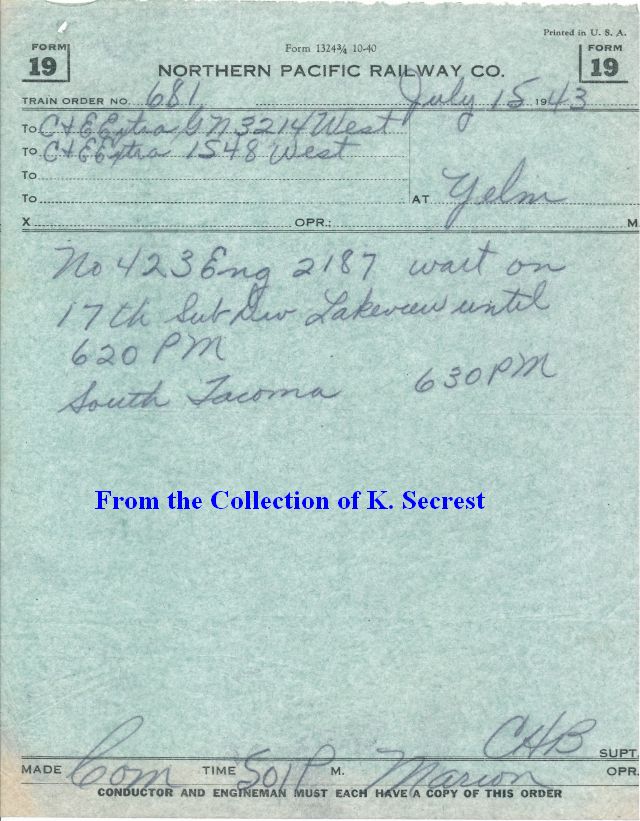 Printed in U. S. A.
FORM 19 Form 1324¾ 10-40 FORM 19
NORTHERN PACIFIC RAILWAY CO.
TRAIN ORDER NO. 681 July 15 1943
To C+E Extra GN 3214 West
To C+E Extra 1548 West
To
To AT Yelm
X OPR.: M
No 423 Eng 2187 wait on
17th Sub Div Lakeview until
620 PM
South Tacoma 630 PM
From the Collection of K. Secrest
CHB SUPT.
MADE Com TIME 501 P M. Marion OPR.
CONDUCTOR AND ENGINEMAN MUST EACH HAVE A COPY OF THIS ORDER